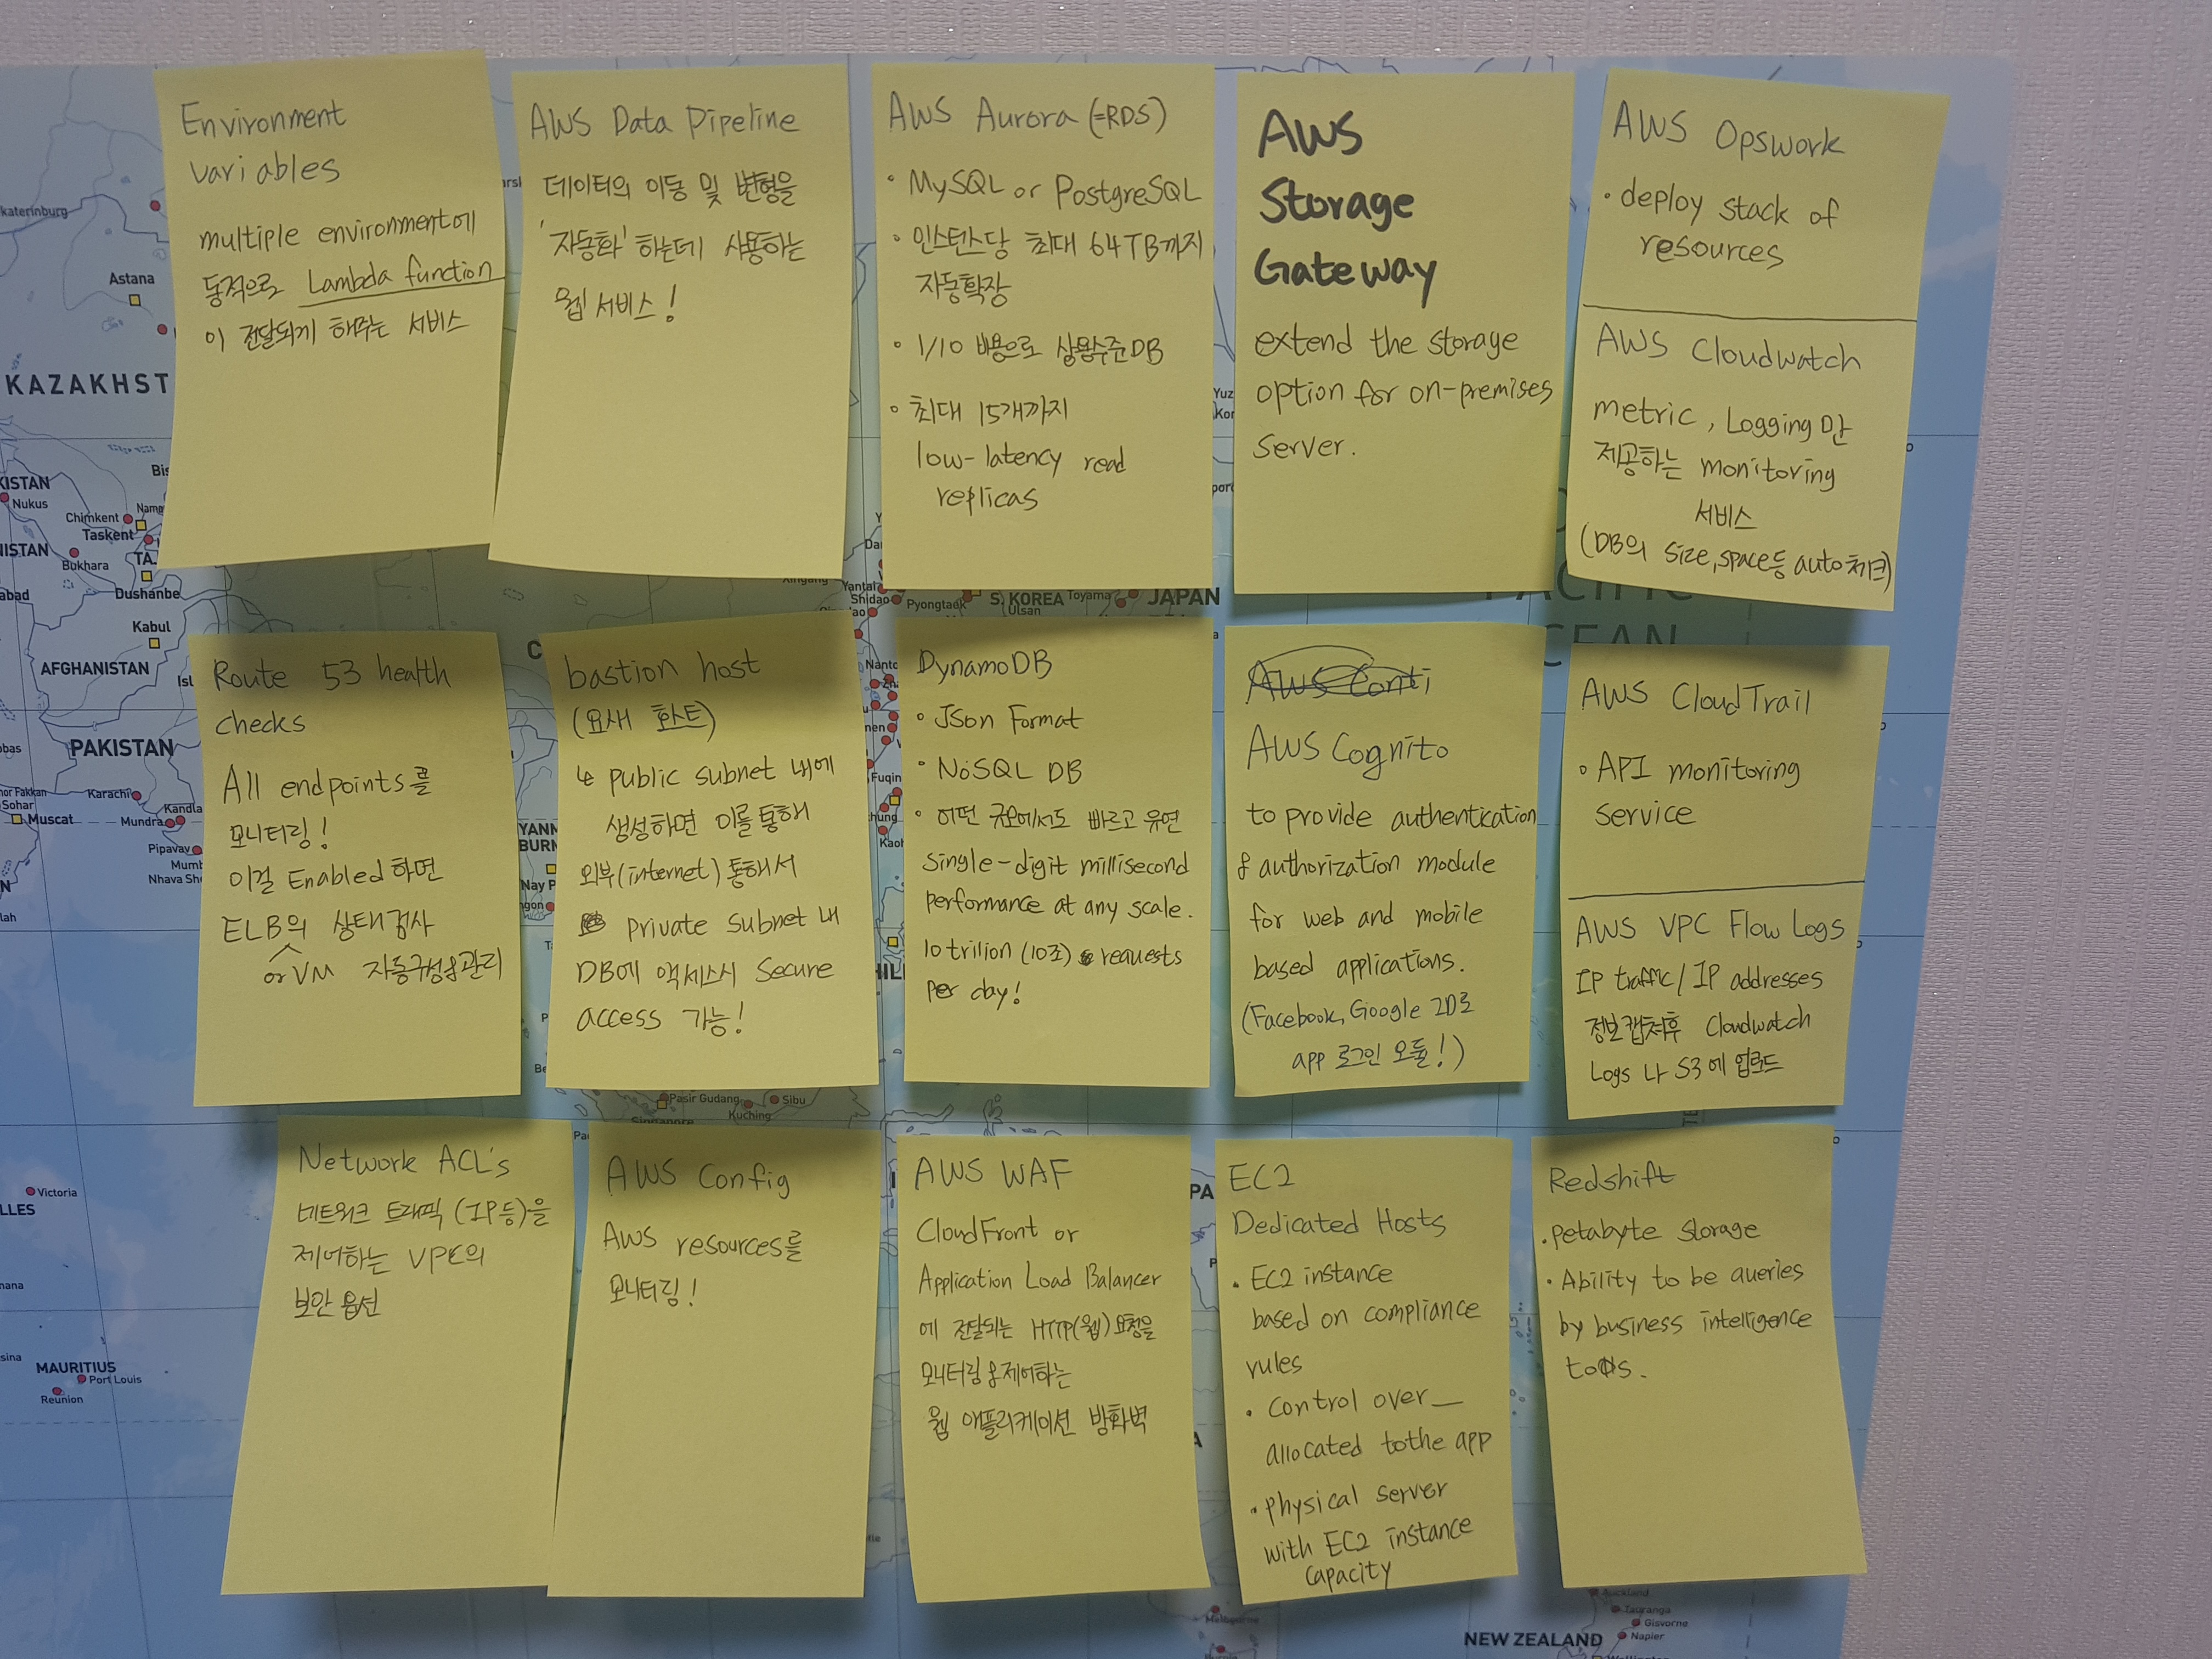 Environment
variables
multiple environment에
동적으로 Lambda function
이 전달되게 해주는 서비스
AWS Data Pipeline
데이터의 이동 및 변형을
'자동화'하는데 사용하는
웹 서비스!
AWS Aurora (=RDS)
• MySQL or PostgreSQL
• 인스턴스당 최대 64TB까지
자동확장
• 1/10 비용으로 상용수준DB
• 최대 15개까지
low-latency read
replicas
AWS
Storage
Gateway
extend the storage
option for on-premises
server.
AWS Opswork
• deploy stack of
resources
AWS Cloudwatch
metric, Logging만
제공하는 monitoring
서비스
(DB의 size, space등 auto체크)
Route 53 health
checks
All endpoints를
모니터링!
이걸 Enabled하면
ELB의 상태검사
or VM 자동구성&관리
bastion host
(요새 호스트)
↳ public subnet 내에
생성하면 이를 통해
외부(internet) 통해서
private subnet 내
DB에 액세스시 Secure
access 가능!
DynamoDB
• JSon Format
• NoSQL DB
• 어떤 규모에서도 빠르고 유연
single-digit millisecond
performance at any scale.
10 trilion (10조) requests
per day!
AWS Conti
AWS Cognito
to provide authentication
& authorization module
for web and mobile
based applications.
(Facebook, Google ID로
app 로그인 모듈!)
AWS CloudTrail
• API monitoring
service
AWS VPC Flow Logs
IP traffic/IP addresses
정보캡쳐후 Cloudwatch
Logs 나 S3에 업로드
Network ACL's
네트워크 트래픽 (IP등)을
제어하는 VPC의
보안 옵션
AWS Config
AWS resources를
모니터링!
AWS WAF
CloudFront or
Application Load Balancer
에 전달되는 HTTP(웹) 요청을
모니터링&제어하는
웹 애플리케이션 방화벽
EC2
Dedicated Hosts
• EC2 instance
based on compliance
rules
• control over_
allocated to the app
• physical server
with EC2 instance
capacity
Redshift
• petabyte storage
• Ability to be queries
by business intelligence
tools.
Astana
KAZAKHST
Nukus
Chimkent
Taskent
Bukhara
Dushanbe
Kabul
AFGHANISTAN
PAKISTAN
Karachi
Kandla
Muscat
Mundra
Pipavav
Nhava
Yantai
Shidao
Pyongtaek
S. KOREA
Ulsan
Toyama
JAPAN
Pasir Gudang
Sibu
Kuching
Singapore
Victoria
MAURITIUS
Port Louis
Reunion
Melbourne
Auckland
Tauranga
Gisvorne
Napier
NEW ZEALAND